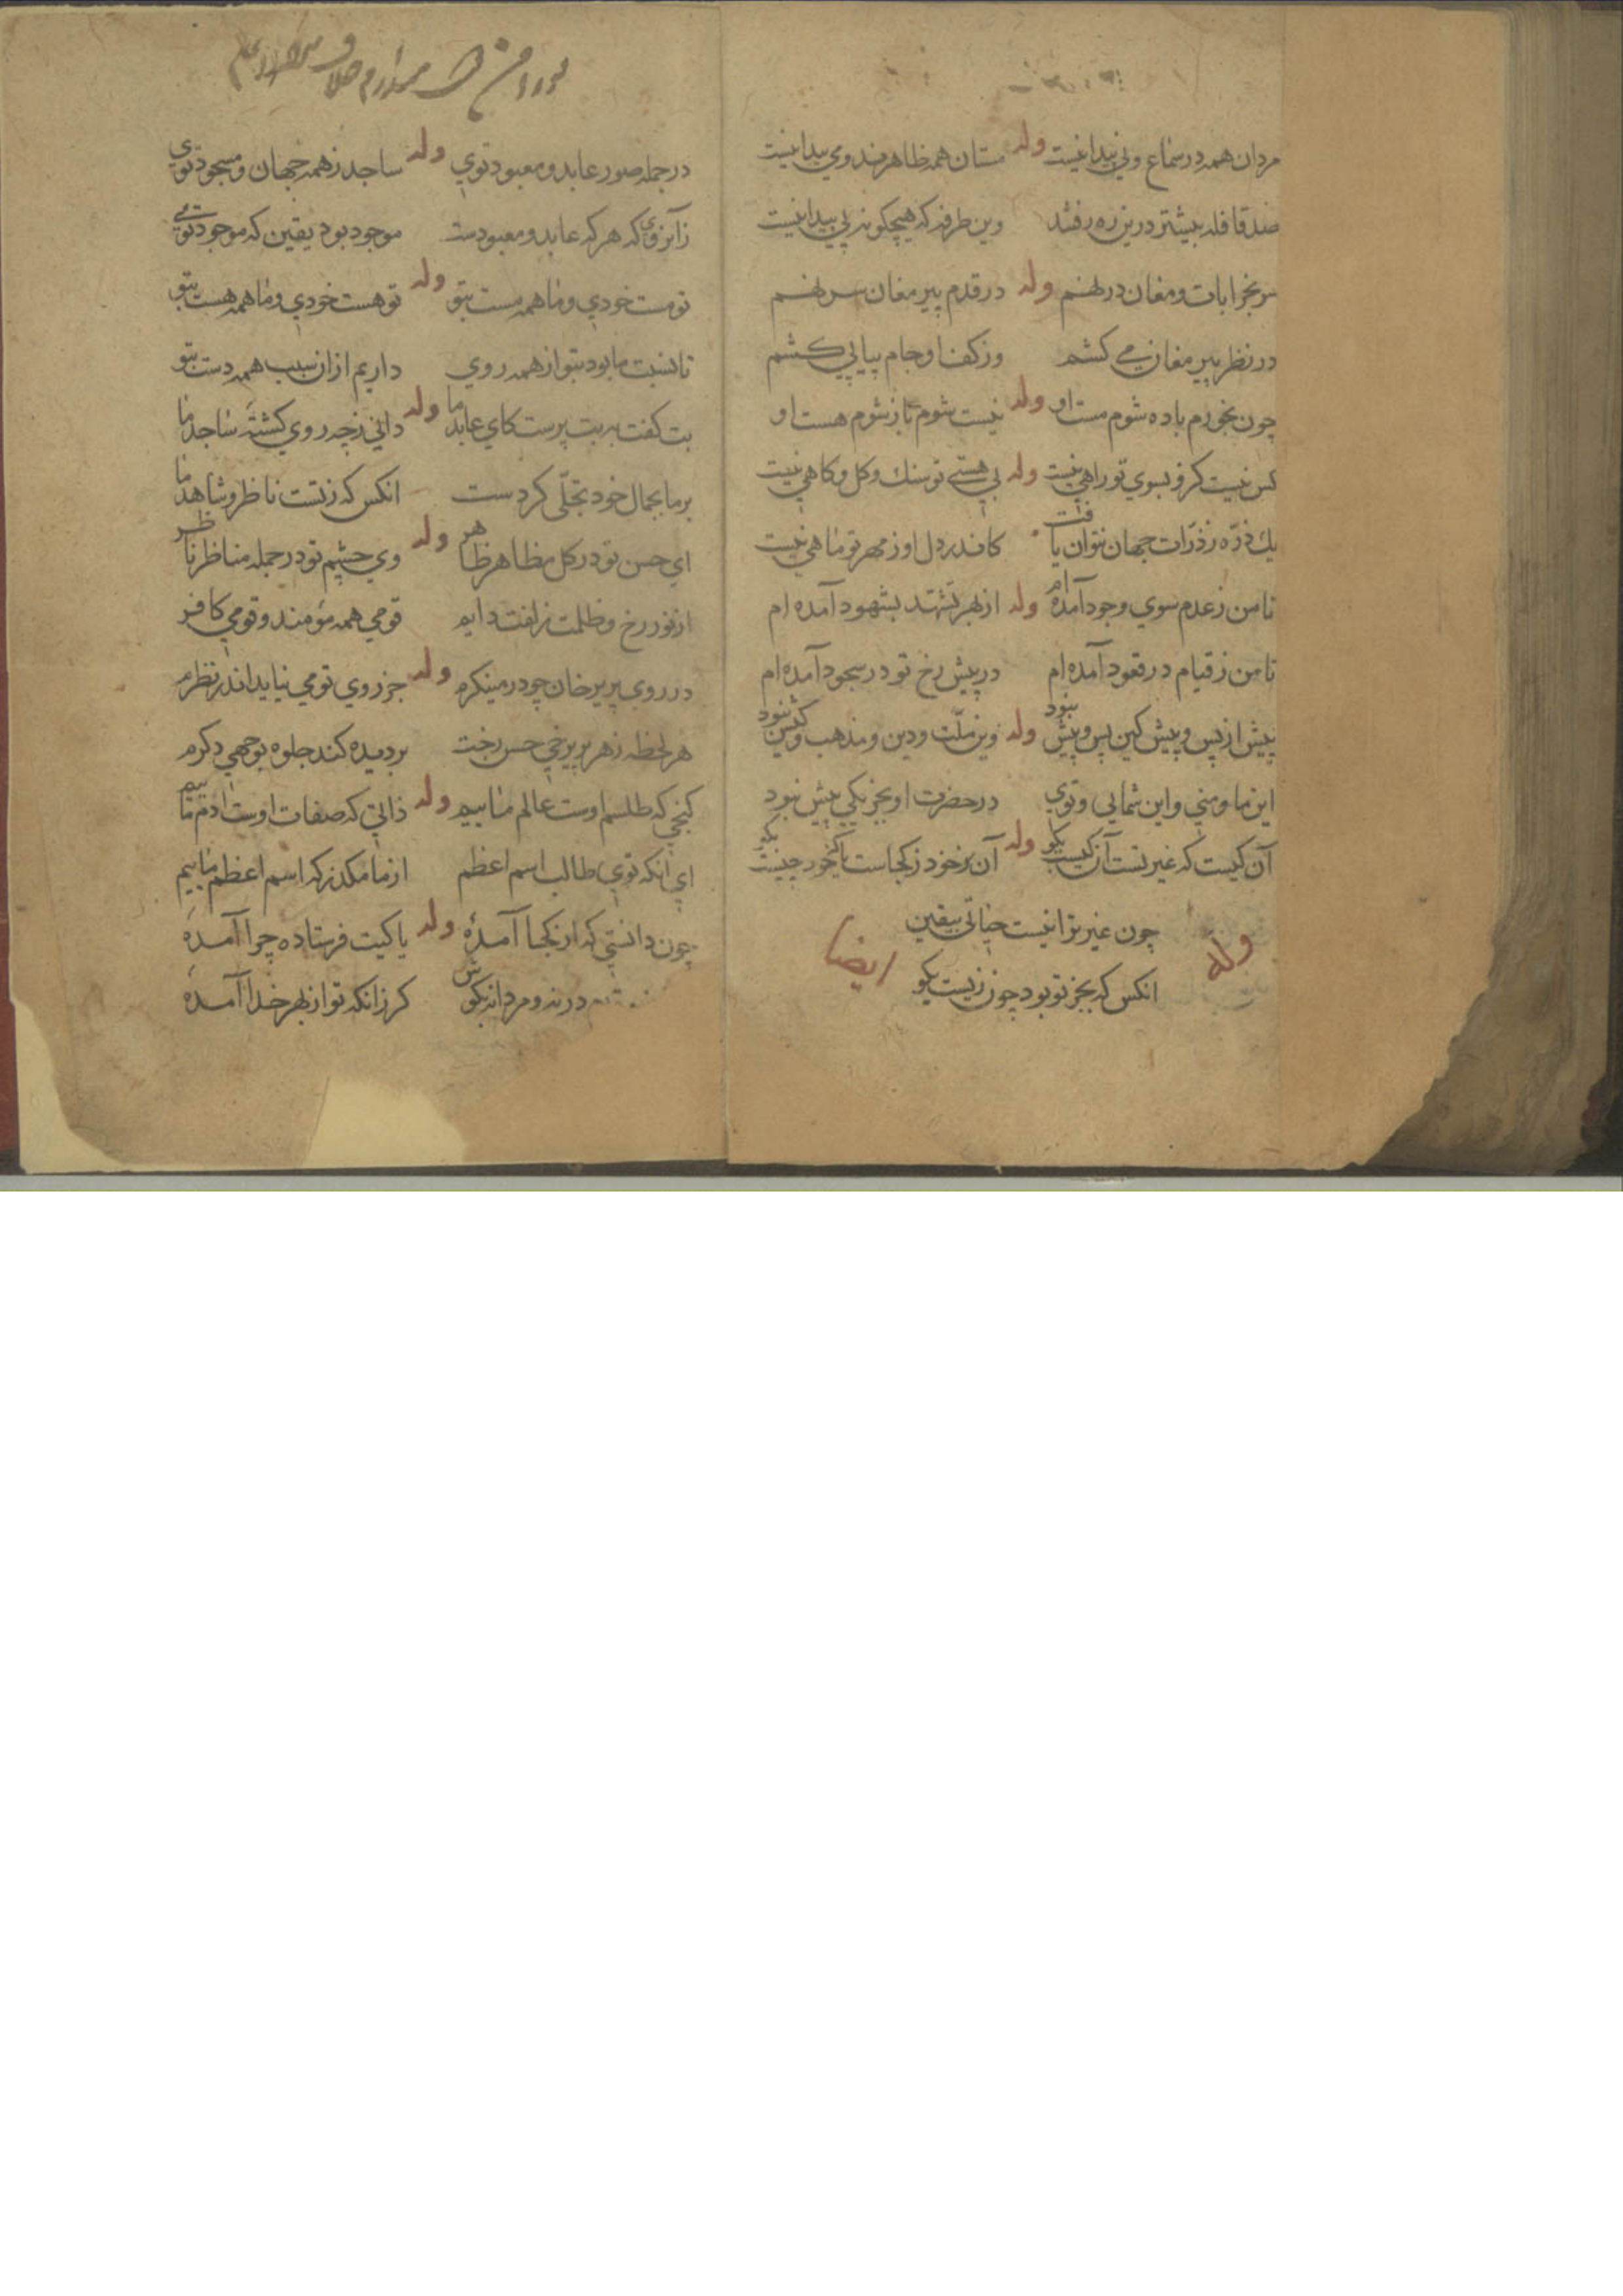 مردان همه در سماع و نی پیدا نیست وله مستان همه ظاهرند و می پیدا نیست
صد قافله بیشتر درین ره رفتند وین طرفه که هیچکونه پی پیدا نیست
سر بخرابات و مغان درنهم وله در قدم پیر مغان سر نهم
در نظر پیر مغان می کشم وز کف او جام پیاپی کشم
چون بخورم باده شوم مست او وله نیست شوم تا زشوم هست او
کس نیست کزو بسوی تو راهی نیست وله بی هستی تو سنك و کل و کاهی نیست
یك ذرّه ز ذرّات جهان نتوان یافت کاندر دل او ز مهر تو ماهی نیست
تا من ز عدم سوی وجود آمده ام وله از بهر تشهّد بشهود آمده ام
تا من ز قیام در قعود آمده ام در پیش رخ تو در سجود آمده ام
پیش از پس و پیش کین پس و پیش نبود وله وین ملّت و دین و مذهب و کیش نبود
این ما و منی و این شمایی و توی در حضرت او بجز یکی بیش نبود
آن کیست که غیر تست آن کیست بکو وله آن بزخود ز کجاست یا خود چیست بکو
چون غیر ترا نیست حیاتی بیقین
وله ایضا
انکس که بجز تو بود چون زیست بکو
در جمله صور عابد و معبود توی وله ساجد ز همه جهان و مسجود توی
زانروی که هرکه عابد و معبودست موجود بود یقین که موجود توی
تو مست خودی و ما همه مست بتو وله تو هست خودی و ما همه هست بتو
تا نسبت ما بود بتو از همه روی داریم ازان سبب همه دست بتو
بت کفت به بت پرست کای عابد ما وله دانی ز چه روی کشتهٔ ساجد ما
بر ما بجمال خود تجلّی کردست انکس که ز تست ناظر و شاهد ما
ای حسن تو در کل مظاهر ظاهر وله وی چشم تو در جمله مناظر ناظر
از نور رخ و ظلمت زلفت دایم قومی همه مؤمند و قومی کافر
در روی پریرخان چو در مینکرم وله جز روی تو می نیاید اندر نظرم
هر لحظه ز هر پریرخی حسن رخت بر دیده کند جلوه بوجهی دکرم
کنجی که طلسم اوست عالم ماییم وله ذاتی که صفات اوست ادم ماییم
ای انکه توی طالب اسم اعظم از ما مکذر که اسم اعظم ماییم
چون دانستی که از کجا آمدهٔ وله یا کیت فرستاده چرا آمدهٔ
در نه و مردانه بکوش کر زانکه تو از بهر خدا آمدهٔ